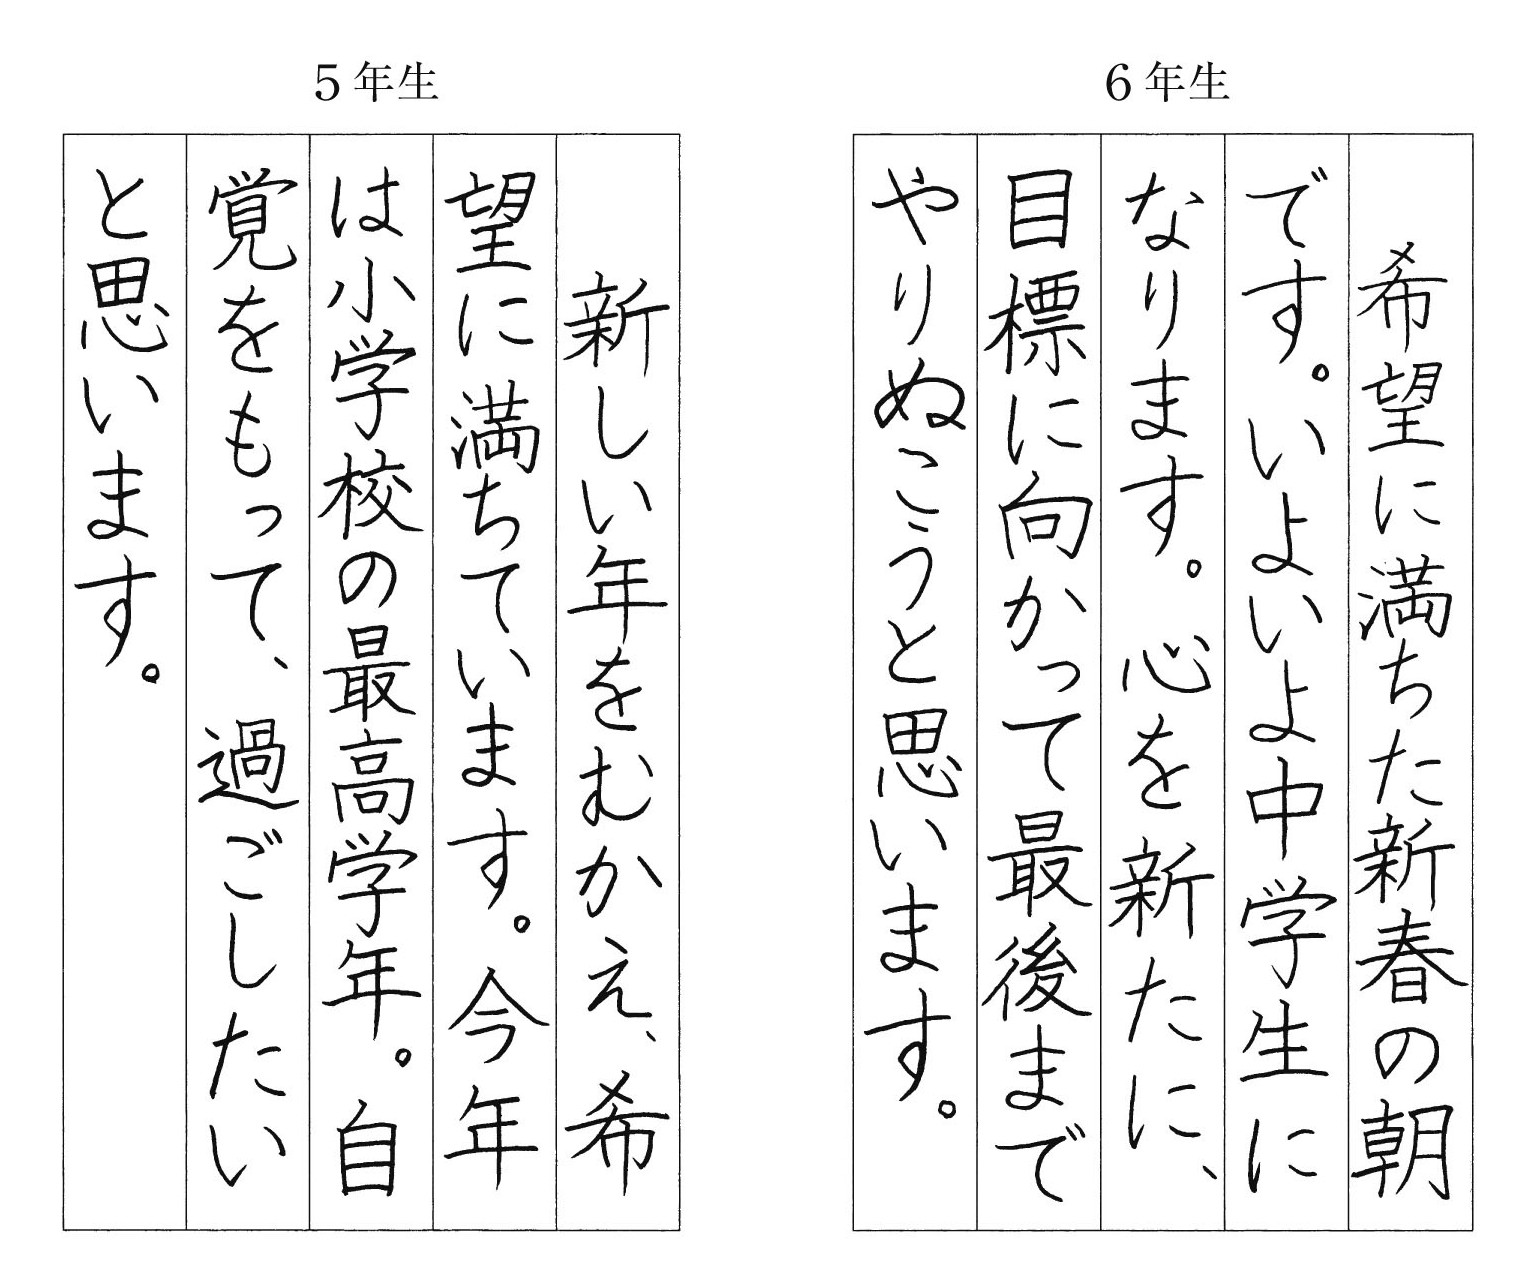 6年生
希望に満ちた新春の朝
です。いよいよ中学生に
なります。心を新たに、
目標に向かって最後まで
やりぬこうと思います。
5年生
新しい年をむかえ、希
望に満ちています。今年
は小学校の最高学年。自
覚をもって、過ごしたい
と思います。